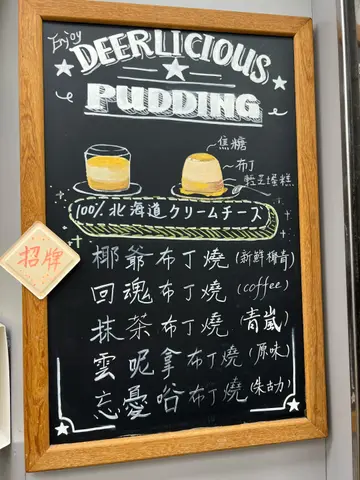 Enjoy
DEERLICIOUS
PUDDING
焦糖
布丁
輕芝士蛋糕
100% 北海道クリームチーズ
招牌
椰爺布丁燒 (新鮮椰青)
回魂布丁燒 (coffee)
抹茶布丁燒 (青嵐)
雲呢拿布丁燒 (原味)
忘憂谷布丁燒 (朱古力)